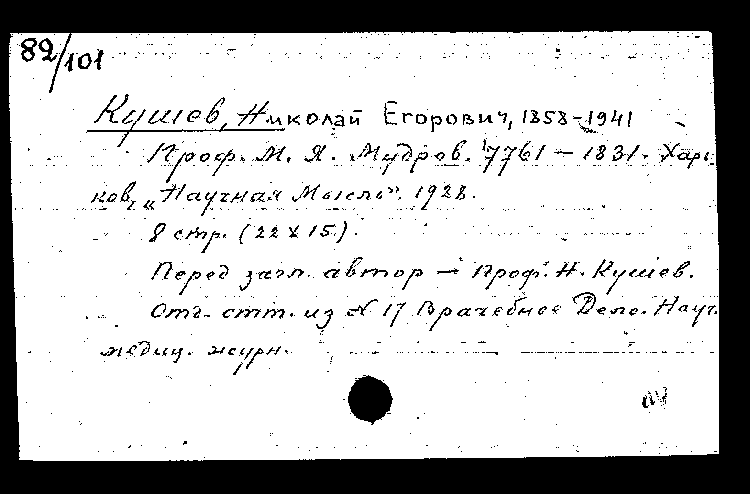 82/101
Кушев, Николай Егорович, 1858-1941
Проф. М. Я. Мудров. 7761 — 1831. Харь
ков, „Научная Мысль". 1928.
8 стр. (22 x 15).
Перед загл. автор — Проф. Н. Кушев.
Отд. отт. из № 17 Врачебное Дело. Науч.
медиц. журн.